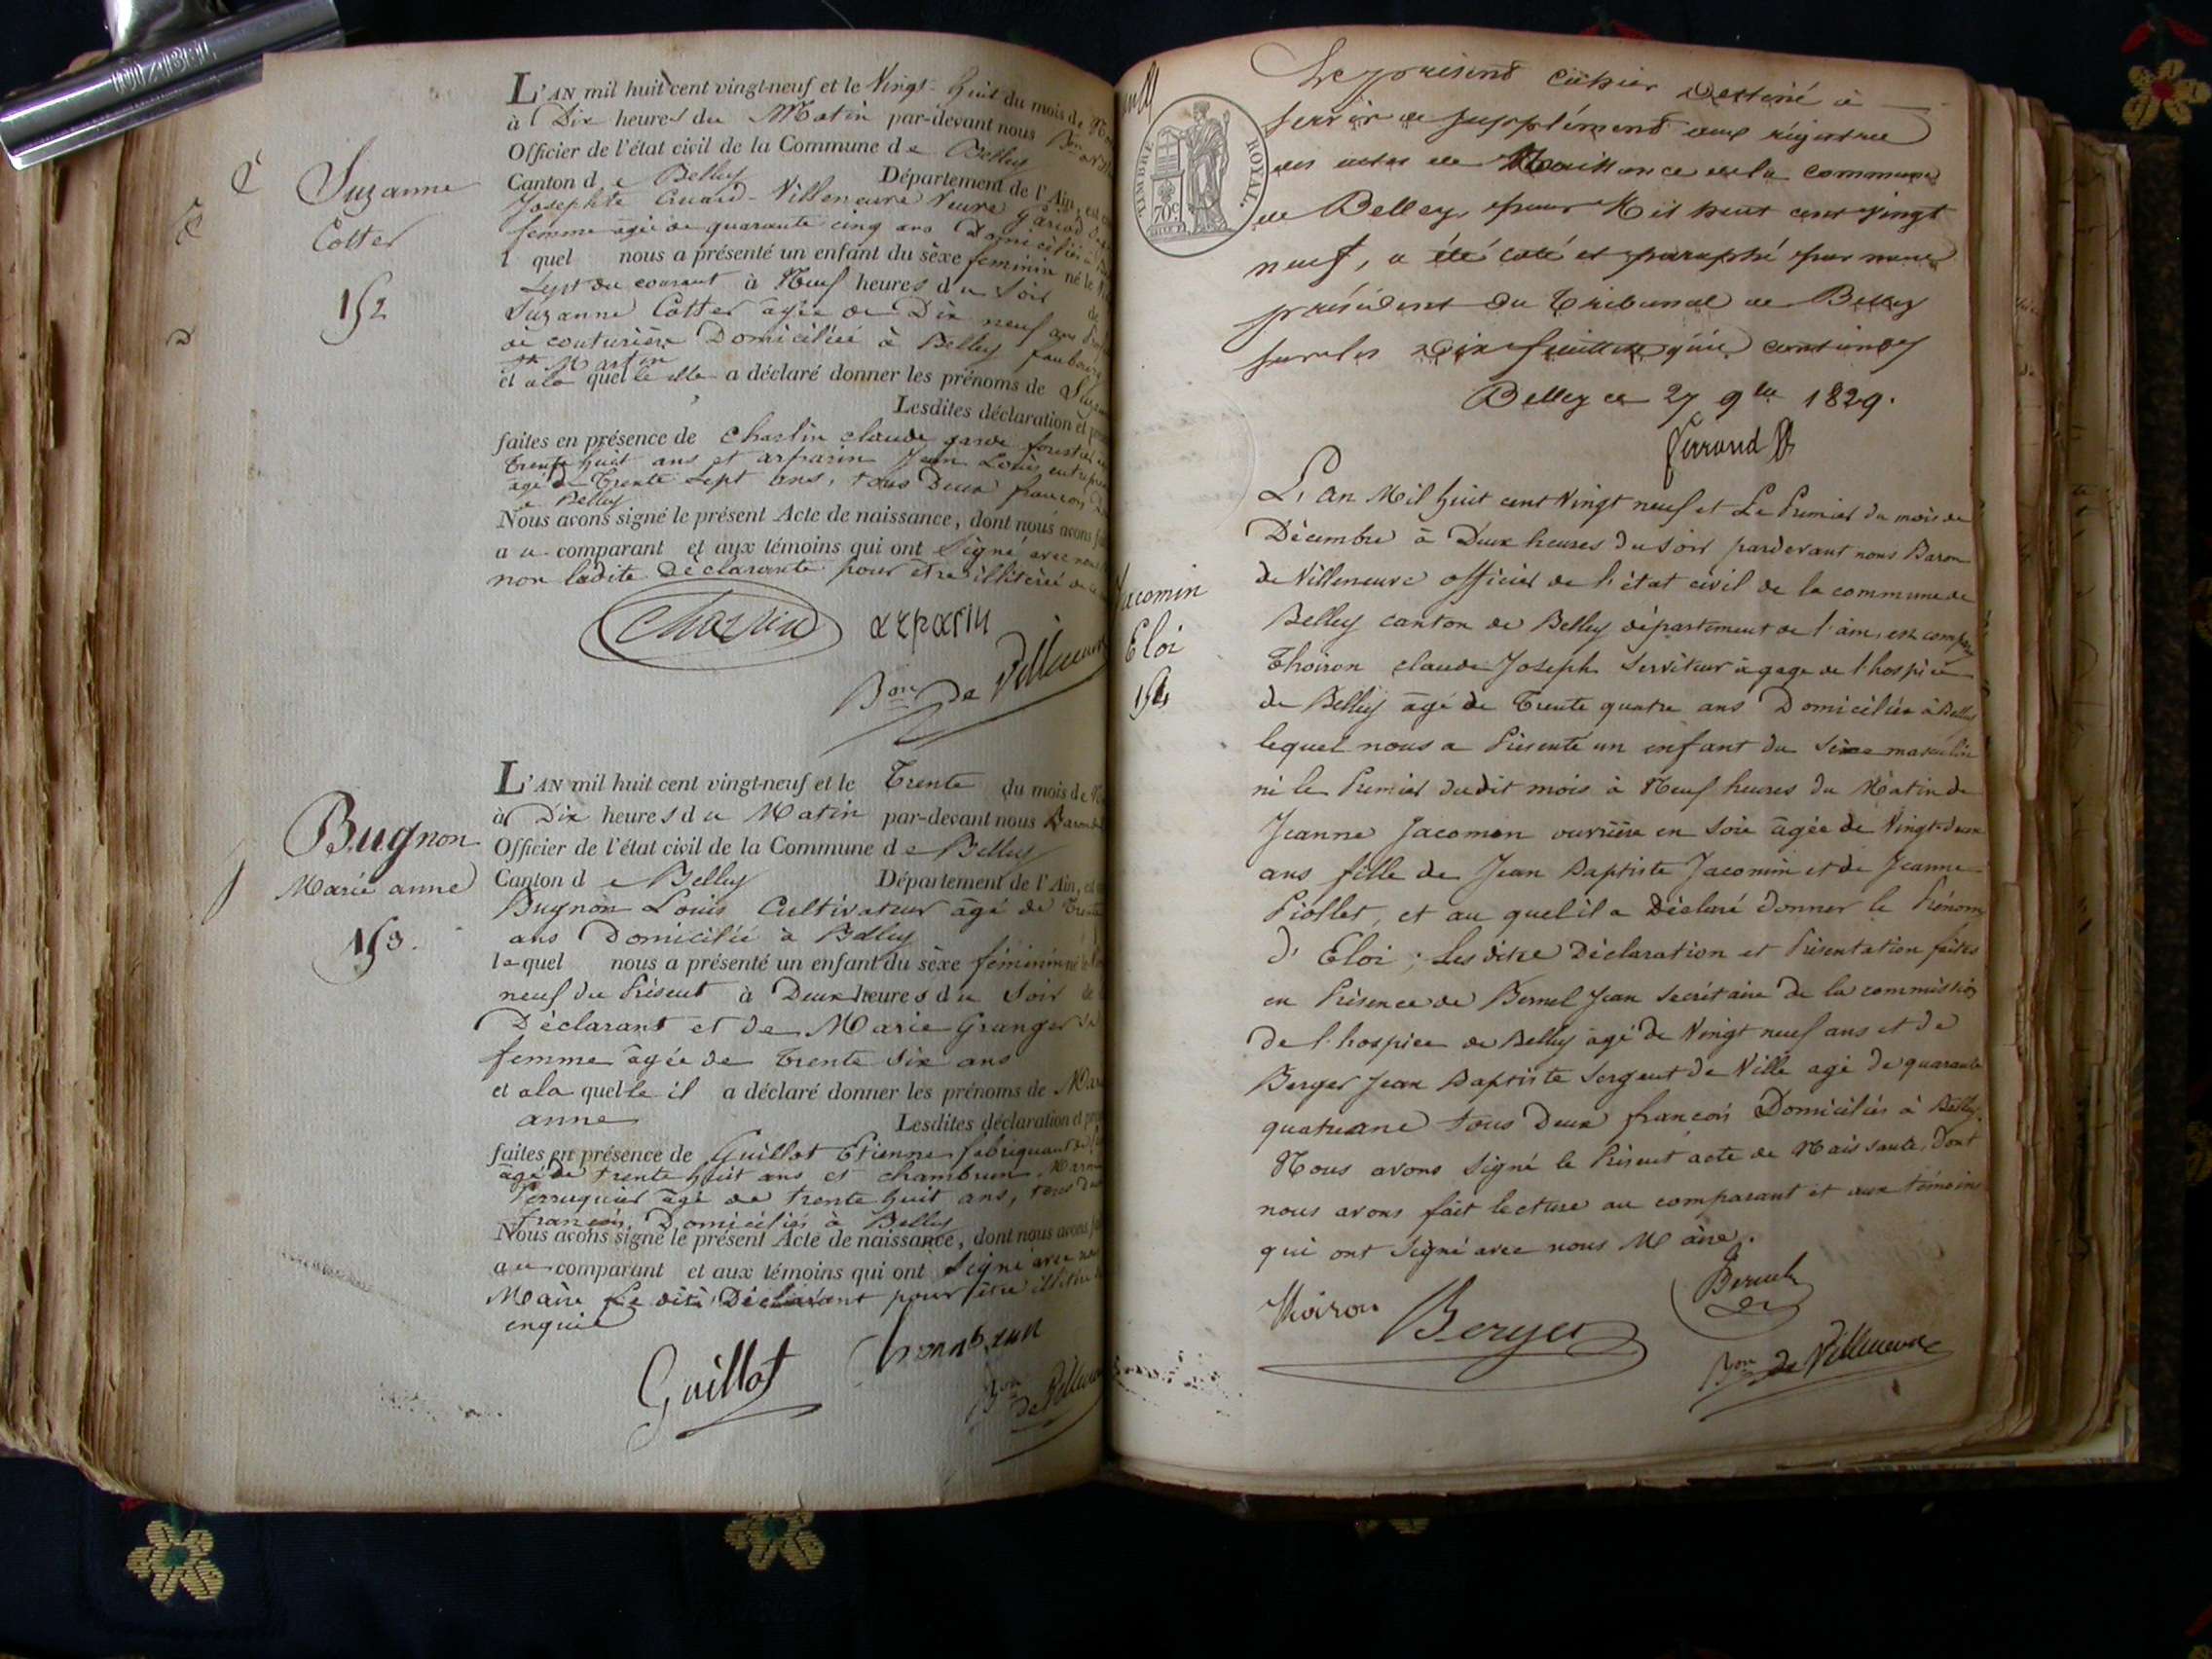 Suzanne
Cotter
152
L'AN mil huit cent vingt-neuf et le Vingt huit du mois de
à Dix heures du Matin par-devant nous Bon
Officier de l'état civil de la Commune de Belley
Canton de Belley Département de l'Ain, est
Josephte Cuard-Villeneuve Veuve
femme agée de quarante cinq ans Domiciliée
l quel nous a présenté un enfant du sèxe feminin né le
Sept du courant à Neuf heures du Soir de
Suzanne Cotter agée de Dix neuf ans
de couturière Domiciliée à Belley faubourg
St Martin
et a la quelle elle a déclaré donner les prénoms de
Lesdites déclaration et
faites en présence de Charlin claude garde forestier
trente huit ans et arparin Jean Louis
agé de Trente Sept ans, tous Deux francois
à Belley
Nous avons signé le présent Acte de naissance, dont nous avons
au comparant et aux témoins qui ont Signé avec nous
non ladite Déclarante pour etre illitérée de ce
arparin
Bon De Villeneuve
Bugnon
Marie anne
153.
L'AN mil huit cent vingt-neuf et le Trente du mois de
à Dix heures du Matin par-devant nous Baron
Officier de l'état civil de la Commune de Belley
Canton de Belley Département de l'Ain, est
Bugnon Louis Cultivateur agé de Trente
ans Domicilié à Belley
lequel nous a présenté un enfant du sèxe féminin né le
neuf du Présent à Deux heures du Soir de
Déclarant et de Marie Granger
femme âgée de Trente Six ans
et a la quelle il a déclaré donner les prénoms de
anne
Lesdites déclaration et
faites en présence de Guillot Etienne fabriquant
agé de trente huit ans et chambrun
Perruquier agé de trente huit ans, tous
francois, Domiciliés à Belley
Nous avons signé le présent Acte de naissance, dont nous avons
au comparant et aux témoins qui ont Signé avec
Maire Le dit Déclarant pour etre
enquis
Guillot
Bon
de
TIMBRE ROYAL.
70c
Le présent cahier destiné à
servir de supplément aux régistres
des actes de Naissance de la commune
de Belley, pour Mil huit cent vingt
neuf, a été coté et paraphé par nous
président du Tribunal de Belley
sur les dix feuillets
Belley ce 27 9bre 1829.
Jacomin
Eloi
154
L'an Mil huit cent Vingt neuf et Le Premier du mois de
Décembre à Deux heures du Soir pardevant nous Baron
de Villeneuve officier de l'état civil de la commune de
Belley canton de Belley département de l'ain, est
Thoiron claude Joseph Serviteur à gage de l'hospice
de Belley âgé de Trente quatre ans Domicilié à Belley
lequel nous a Présenté un enfant du Sèxe masculin
né le Premier dudit mois à Neuf heures du Matin de
Jeanne Jacomen ouvrière en Soie âgée de Vingt-deux
ans fille de Jean Baptiste Jacomin et de Jeanne
Piollet, et au quel il a Déclaré donner le Prénom
d' Eloi; Lesdites Déclaration et Présentation faites
en Présence de Bernel Jean Secrétaire de la commission
de l'hospice de Belley âgé de Vingt neuf ans et de
Berger Jean Baptiste Sergent de Ville agé de quarante
quatre ans tous Deux francois Domiciliés à Belley.
Nous avons Signé le Présent acte de Naissance, Dont
nous avons fait lecture au comparant et aux témoins
qui ont Signé avec nous Maire.
Thoiron
Berger
Bon de Villeneuve